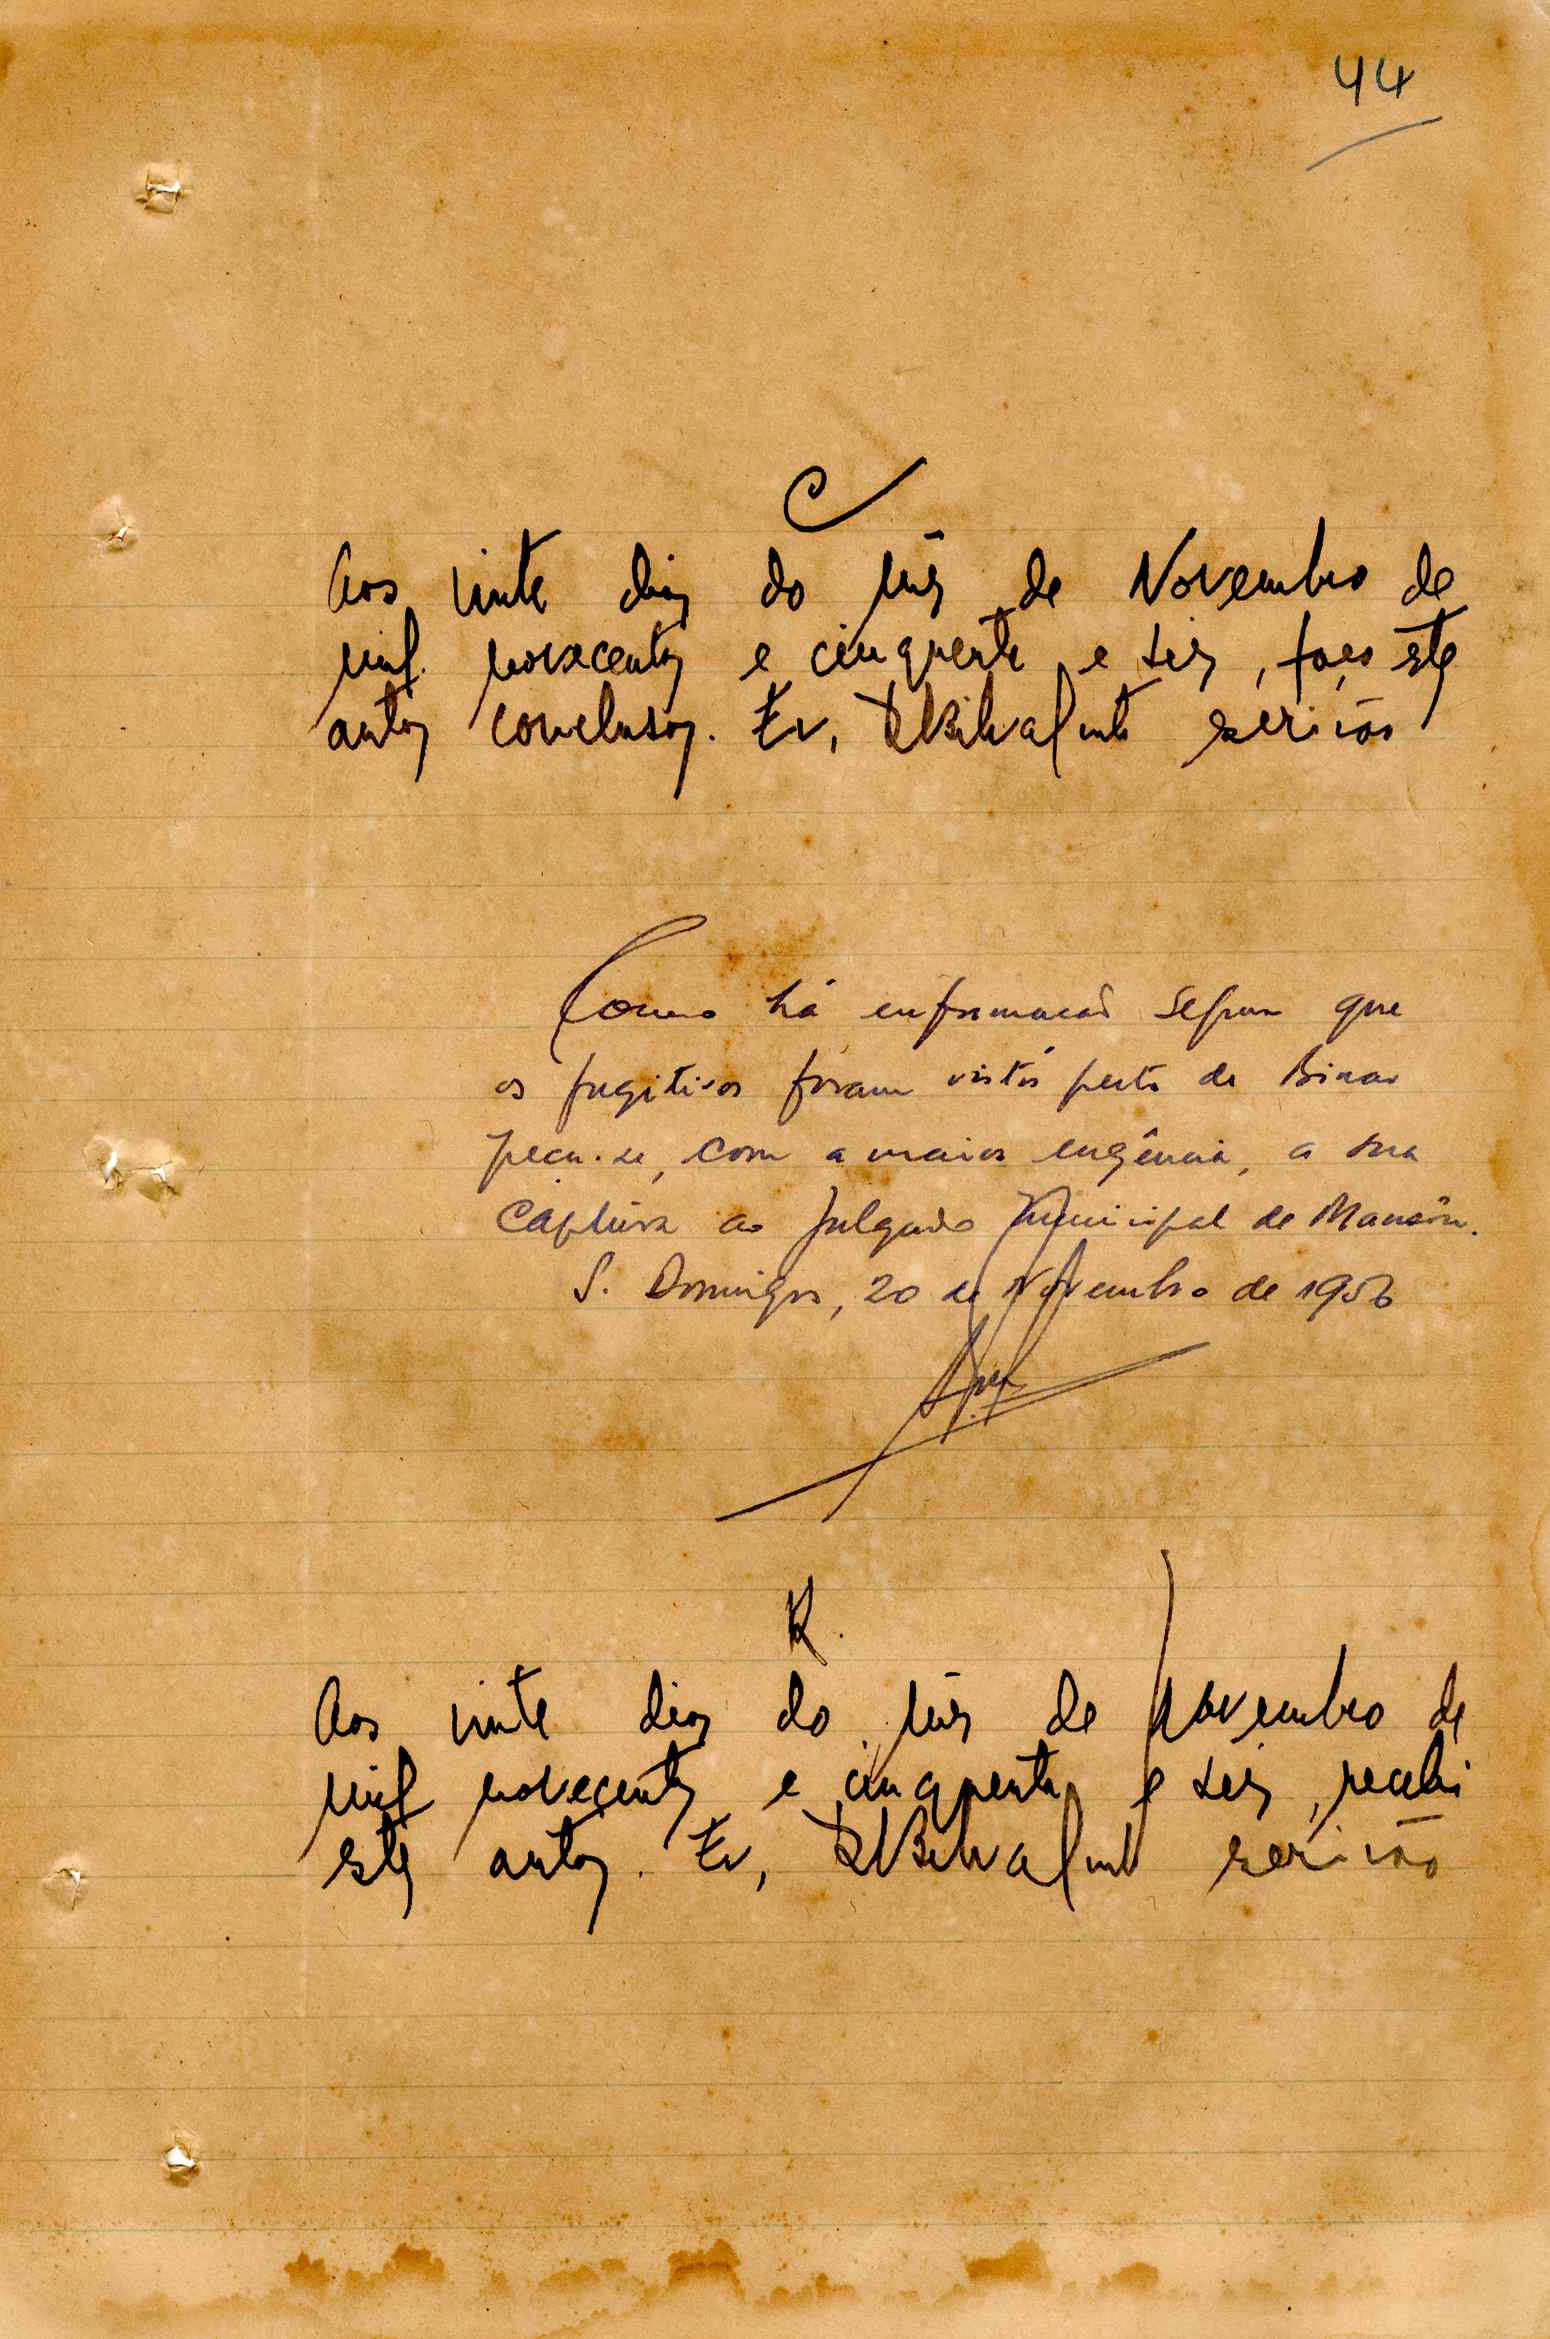 44
C
Aos vinte dias do mês de Novembro de
mil novecentos e cinquenta e seis, faço estes
autos conclusos. Eu, escrivão
Como há enformação segura que
os fugitivos foram vistos perto de Binar
peça-se, com a maior urgência, a sua
captura ao Julgado Municipal de Mansôa.
S. Domingos, 20 de Novembro de 1956
R.
Aos vinte dias do mês de Novembro de
mil novecentos e cinquenta e seis, recebi
estes autos. Eu, escrivão